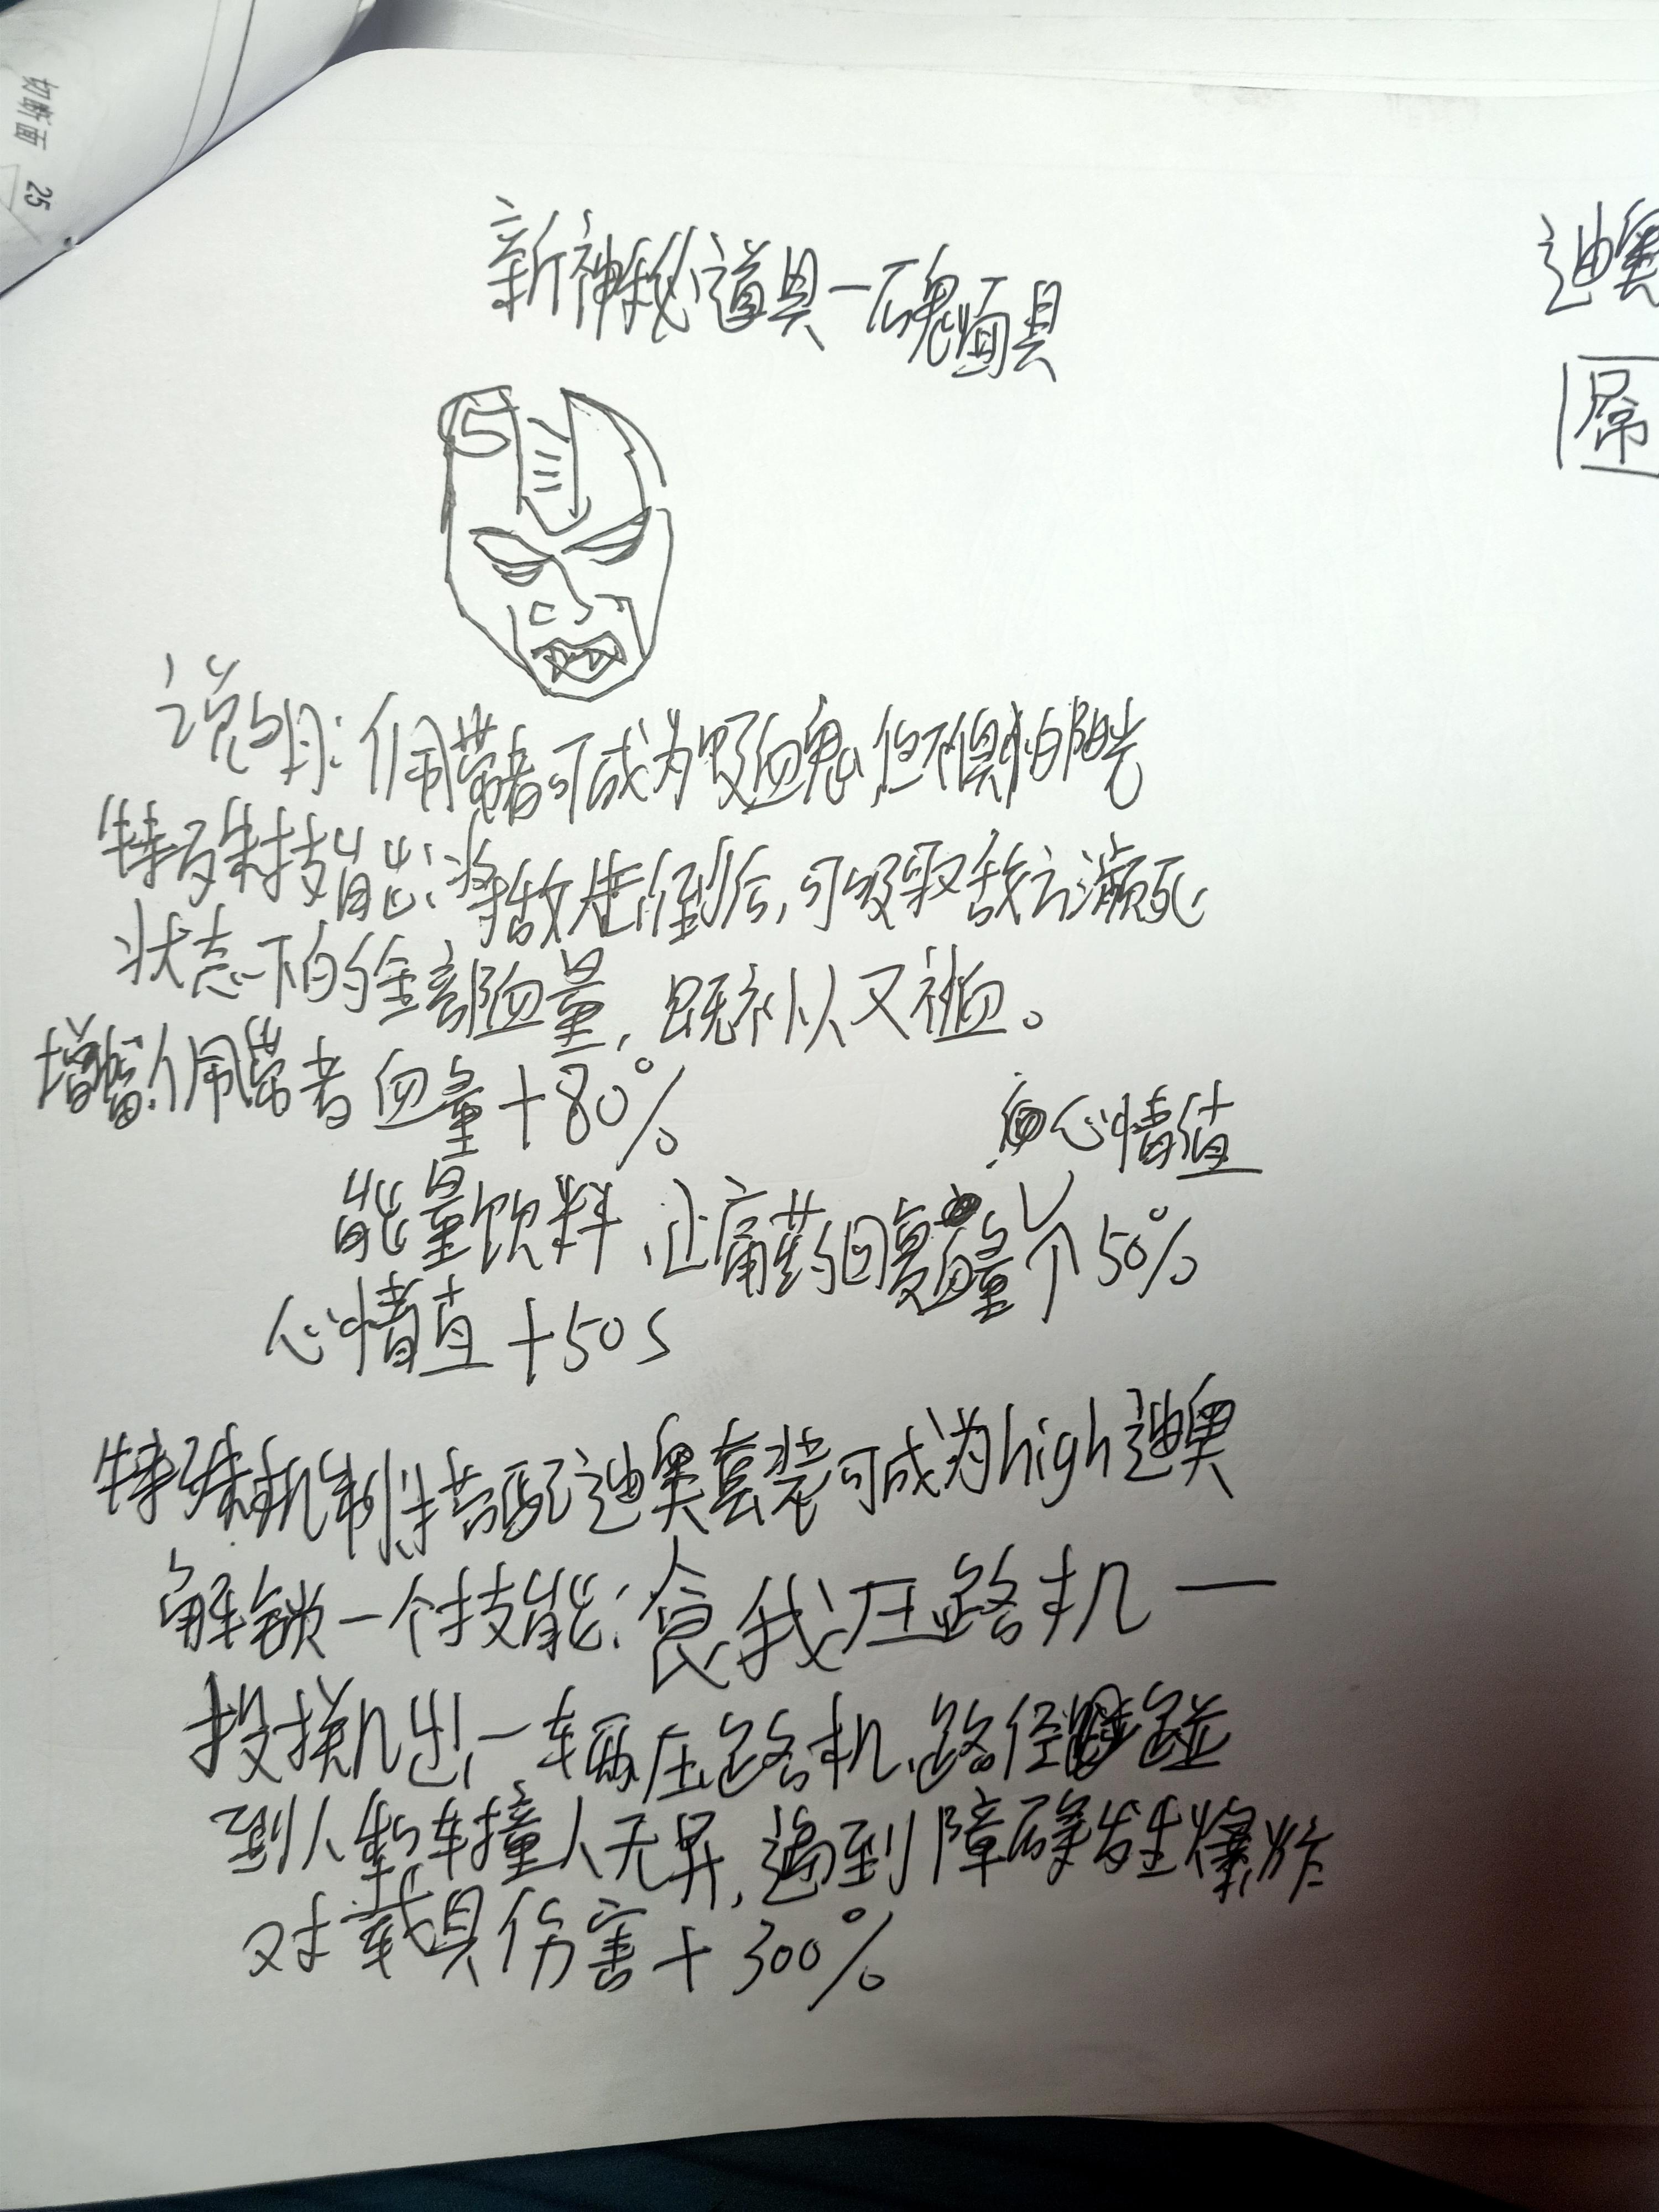 切断面 25
新神秘道具一石鬼面具
迪奥
屌
说明:佩带者可成为吸血鬼,但不惧怕阳光
特殊技能:将敌人击倒后,可吸取敌方濒死
状态下的全部血量,既补人又补血。
增幅:佩带者血量+80%
心情值
能量饮料、止痛药回复量个50%
心情值+50s
特殊机制:搭配迪奥套装可成为high迪奥
解锁一个技能:食我压路机一
投掷出一辆压路机,路径碰
到人载车撞人无异,遇到障碍发生爆炸
对载具伤害+300%